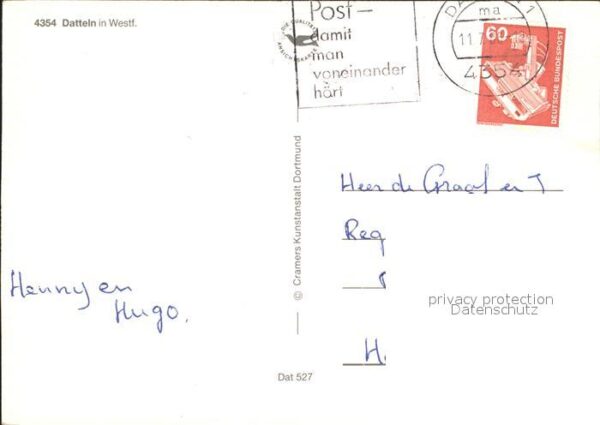 4354 Datteln in Westf.
DIE QUALITÄTS
ANSICHTSKARTE
Post –
damit
man
voneinander
hört
DA 1
ma
11.7
4354
60
DEUTSCHE BUNDESPOST
© Cramers Kunstanstalt Dortmund
Heer de Graaf en T
Reg
H.
Henny en
Hugo.
privacy protection
Datenschutz
Dat 527